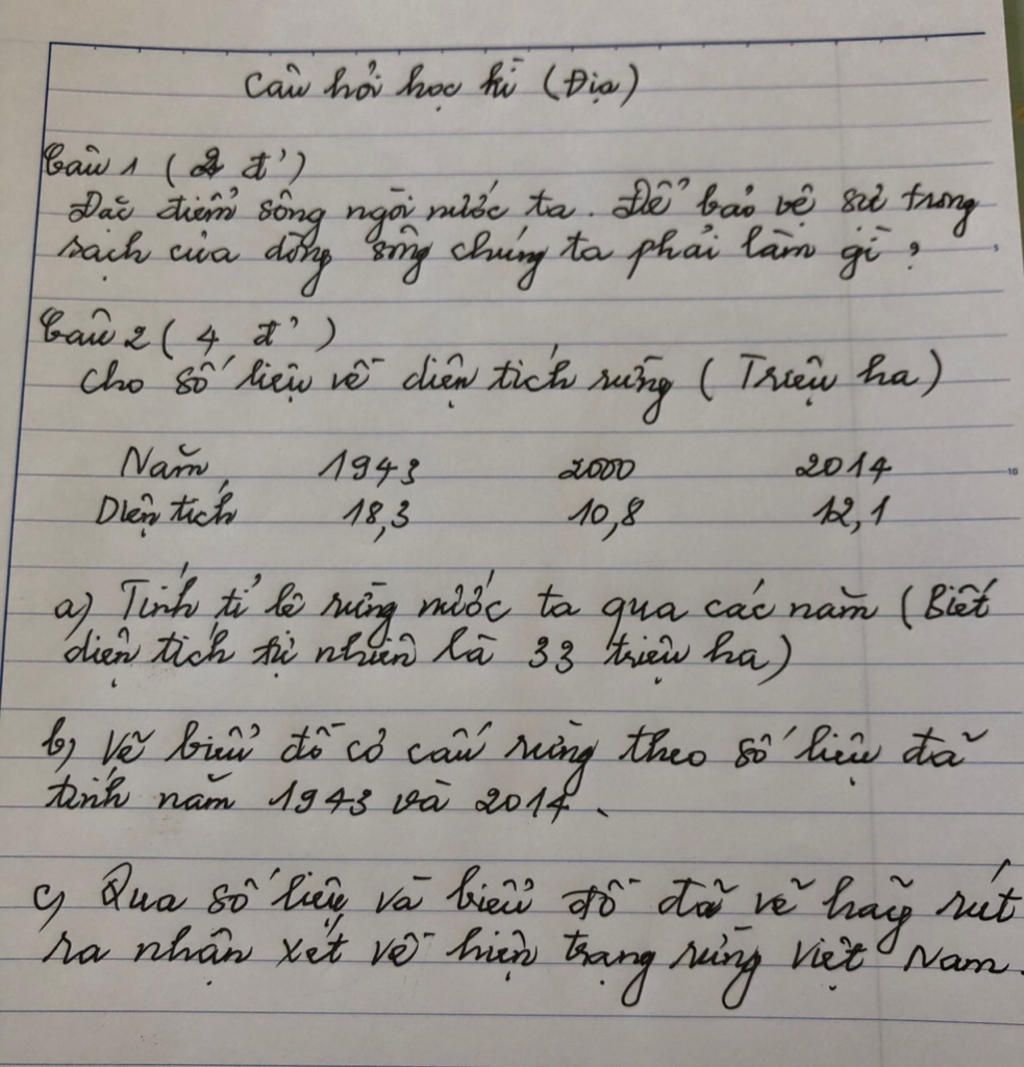 Câu hỏi học kì (Địa)
Câu 1 ( đ')
Đặc điểm sông ngòi nước ta. Để bảo vệ sự trong
sạch của dòng sông chúng ta phải làm gì ?
Câu 2 ( 4 đ' )
Cho số liệu về diện tích rừng ( Triệu ha )
Năm 1943 2000 2014
Diện tích 18,3 10,8 12,1
a) Tính tỉ lệ rừng nước ta qua các năm ( Biết
diện tích tự nhiên là 33 triệu ha )
b) Vẽ biểu đồ cơ cấu rừng theo số liệu đã
tính năm 1943 và 2014 .
c) Qua số liệu và biểu đồ đã vẽ hãy rút
ra nhận xét về hiện trạng rừng Việt Nam.
10